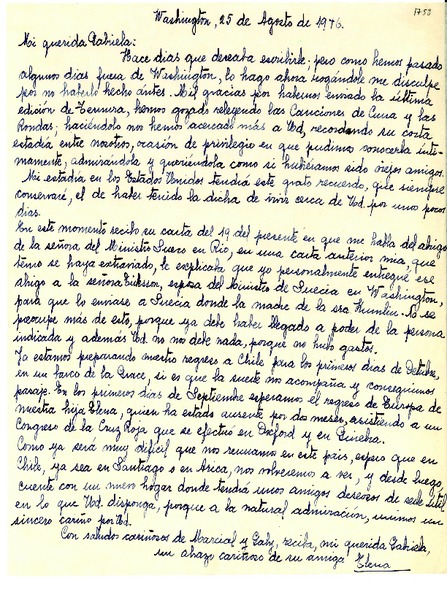 1753
Washington, 25 de Agosto de 1946.
Mi querida Gabriela:
Hace días que deseaba escribirle; pero como hemos pasado
algunos días fuera de Washington, lo hago ahora rogándole me disculpe
por no haberlo hecho antes. Mil gracias por habernos enviado la última
edición de Ternura, hemos gozado releyendo las Canciones de Cuna y las
Rondas; haciéndolo nos hemos acercado más a Ud, recordando su corta
estadía entre nosotros, ocasión de privilegio en que pudimos conocerla ínti-
mamente, admirándola y queriéndola como si hubiéramos sido viejos amigos.
Mi estadía en los Estados Unidos tendrá este grato recuerdo, que siempre
conservaré, el de haber tenido la dicha de vivir cerca de Ud. por unos pocos
días.
En este momento recibo su carta del 19 del presente en que me habla del abrigo
de la señora del Ministro Sueco en Río, en una carta anterior mía, que
temo se haya extraviado, le explicaba que yo personalmente entregué ese
abrigo a la señora Eriksson, esposa del Ministro de Suecia en Washington,
para que lo enviase a Suecia donde la madre de la sra Kumlin. No se
preocupe más de esto, porque ya debe haber llegado a poder de la persona
indicada y además Ud. no me debe nada, porque no hubo gastos.
Ya estamos preparando nuestro regreso a Chile para los primeros días de Octubre,
en un barco de la Grace, si es que la suerte nos acompaña y conseguimos
pasaje. En los primeros días de Septiembre esperamos el regreso de Europa de
nuestra hija Elena, quien ha estado ausente por dos meses, asistiendo a un
Congreso de la Cruz Roja que se efectuó en Oxford y en Ginebra.
Como ya será muy difícil que nos reunamos en este país, espero que en
Chile, ya sea en Santiago o en Arica, nos volveremos a ver, y desde luego,
cuente con un nuevo hogar donde tendrá unos amigos deseosos de serle útil
en lo que Ud. disponga, porque a la natural admiración, unimos un
sincero cariño por Ud.
Con saludos cariñosos de Marcial y Gaby, reciba, mi querida Gabriela,
un abrazo cariñoso de su amiga Elena